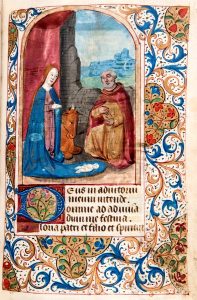 Deus in adiutoriu
meum intende.
Domine ad adiuva
dum me festina.
Gloria patri et filio et spiritui